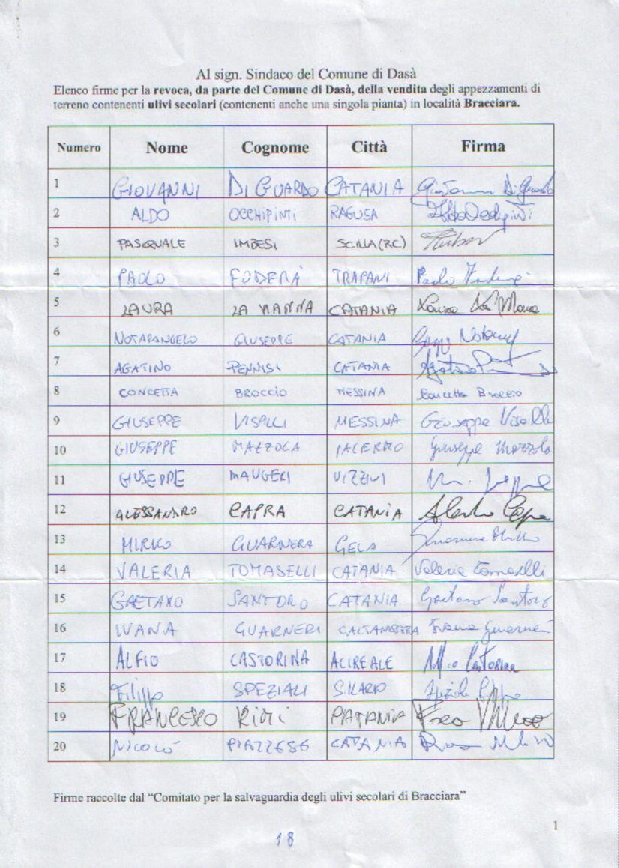 Al sign. Sindaco del Comune di Dasà
Elenco firme per la revoca, da parte del Comune di Dasà, della vendita degli appezzamenti di
terreno contenenti ulivi secolari (contenenti anche una singola pianta) in località Bracciara.
Numero Nome Cognome Città Firma
1 GIOVANNI DI GUARDO CATANIA
2 ALDO OCCHIPINTI RAGUSA
3 PASQUALE IMBESI SCILLA (RC)
4 PAOLO FODERÀ TRAPANI
5 LAURA LA MANNA CATANIA
6 NOTARANGELO GIUSEPPE CATANIA
7 AGATINO PENNISI CATANIA
8 CONCETTA BROCCIO MESSINA Concetta Broccio
9 GIUSEPPE MESSINA Giuseppe
10 GIUSEPPE MAZZOLA PALERMO Giuseppe Mazzola
11 GIUSEPPE MAUGERI VIZZINI
12 ALESSANDRO CAPRA CATANIA
13 MIRKO GUARNERA GELA
14 VALERIA TOMASELLI CATANIA Valeria Tomaselli
15 GAETANO SANTORO CATANIA Gaetano Santoro
16 IVANA GUARNERI Ivana Guarneri
17 ALFIO CASTORINA ACIREALE
18 Filippo SPEZIALI
19 FRANCESCO
20 NICOLÒ PIAZZESE CATANIA
Firme raccolte dal “Comitato per la salvaguardia degli ulivi secolari di Bracciara”
1
18